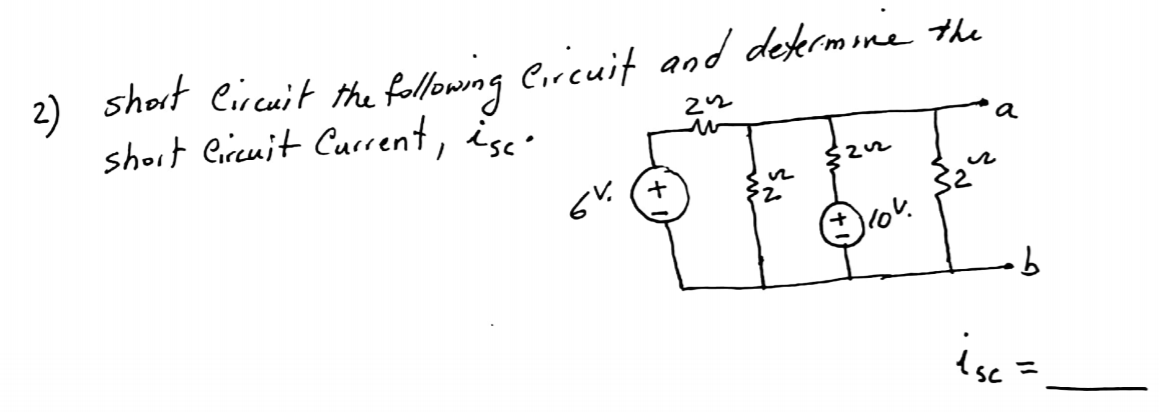 2) short Circuit the following Circuit and determine the
short Circuit Current, isc.
2Ω
a
2Ω
2Ω
2Ω
6V.
+
-
+
-
10V.
b
isc = ____